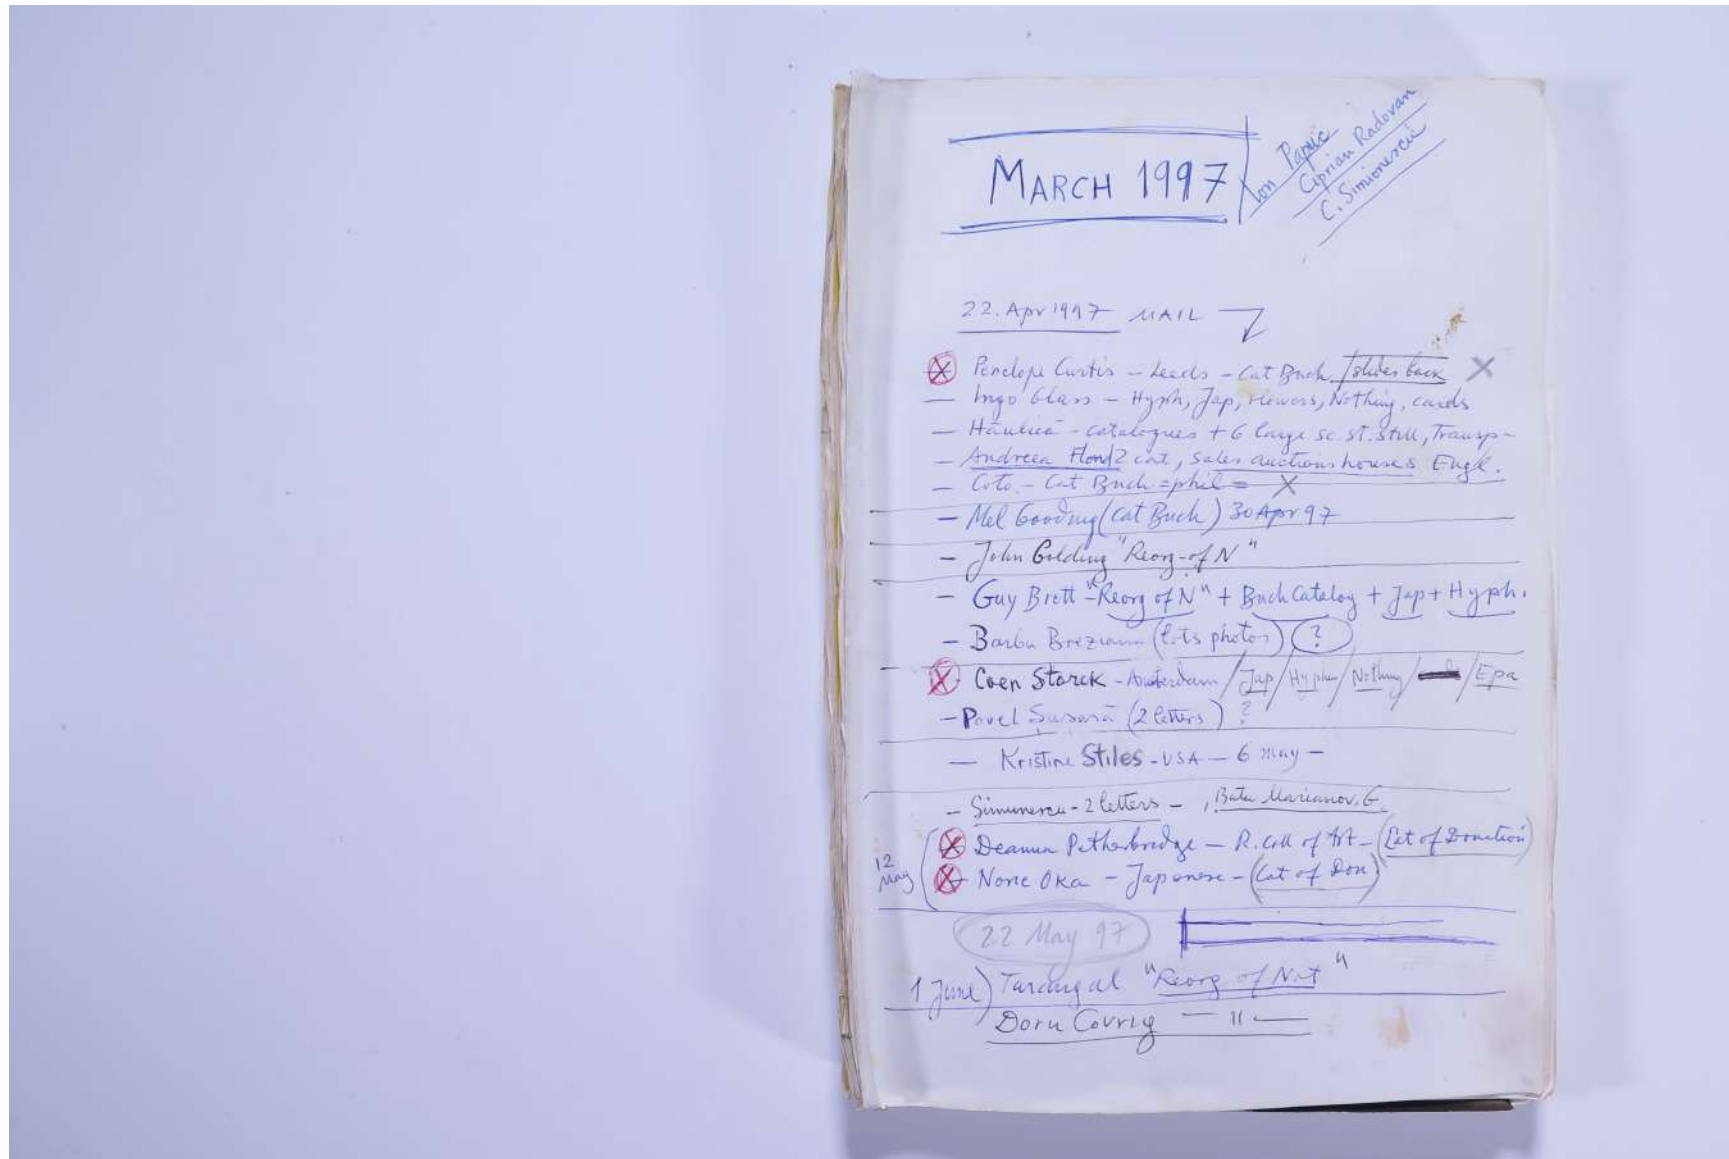 MARCH 1997
Ion Papuc
Ciprian Radovan
C. Simionescu
22. Apr 1997 MAIL
Penelope Curtis - Leeds - Cat Buch / slides back X
- Ingo Glass - Hyph, Jap, Flowers, Nothing, cards
- Hăulică - catalogues + 6 large sc. st. still, Transp -
- Andreea 2 cat, sales auctions houses Engl.
- Coto - Cat Buch = phil = X
- Mel Gooding (Cat Buch) 30 Apr 97
- John Golding "Reorg - of N"
- Guy Brett - "Reorg of N" + Buch Catalog + Jap + Hyph.
- Barbu Brezianu (lots photos) ?
X Coen Starck - Amsterdam / Jap / Hyphen / Nothing / / Epa
- Pavel Șușară (2 letters) ?
- Kristine Stiles - USA - 6 May -
- Simunescu - 2 letters - , Batu Marianov. G.
12 May
X Deanna Petherbridge - R. Coll of Art - (Cat of Donation)
X Norie Oka - Japonese - (Cat of Don)
22 May 97
1 June) "Reorg of Nat"
Doru Covrig — 11 —